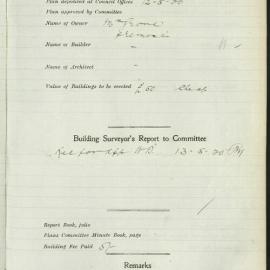 Plan deposited at Council Offices 12-5-20
Plan approved by Committee
Name of Owner
Name of Builder "
Name of Architect "
Value of Buildings to be erected £ 50
Building Surveyor's Report to Committee
13-5-20
Report Book, folio
Plans Committee Minute Book, page
Building Fee Paid 5/-
Remarks